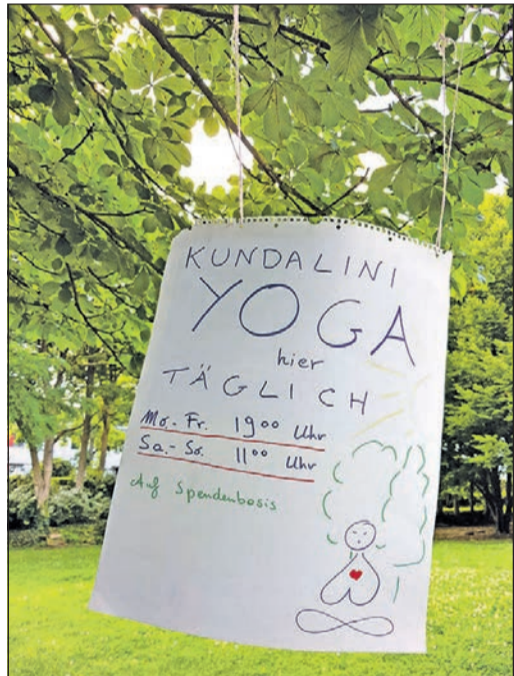 KUNDALINI
YOGA
hier
TÄGLICH
Mo.- Fr. 19⁰⁰ Uhr
Sa.- So. 11⁰⁰ Uhr
Auf Spendenbasis